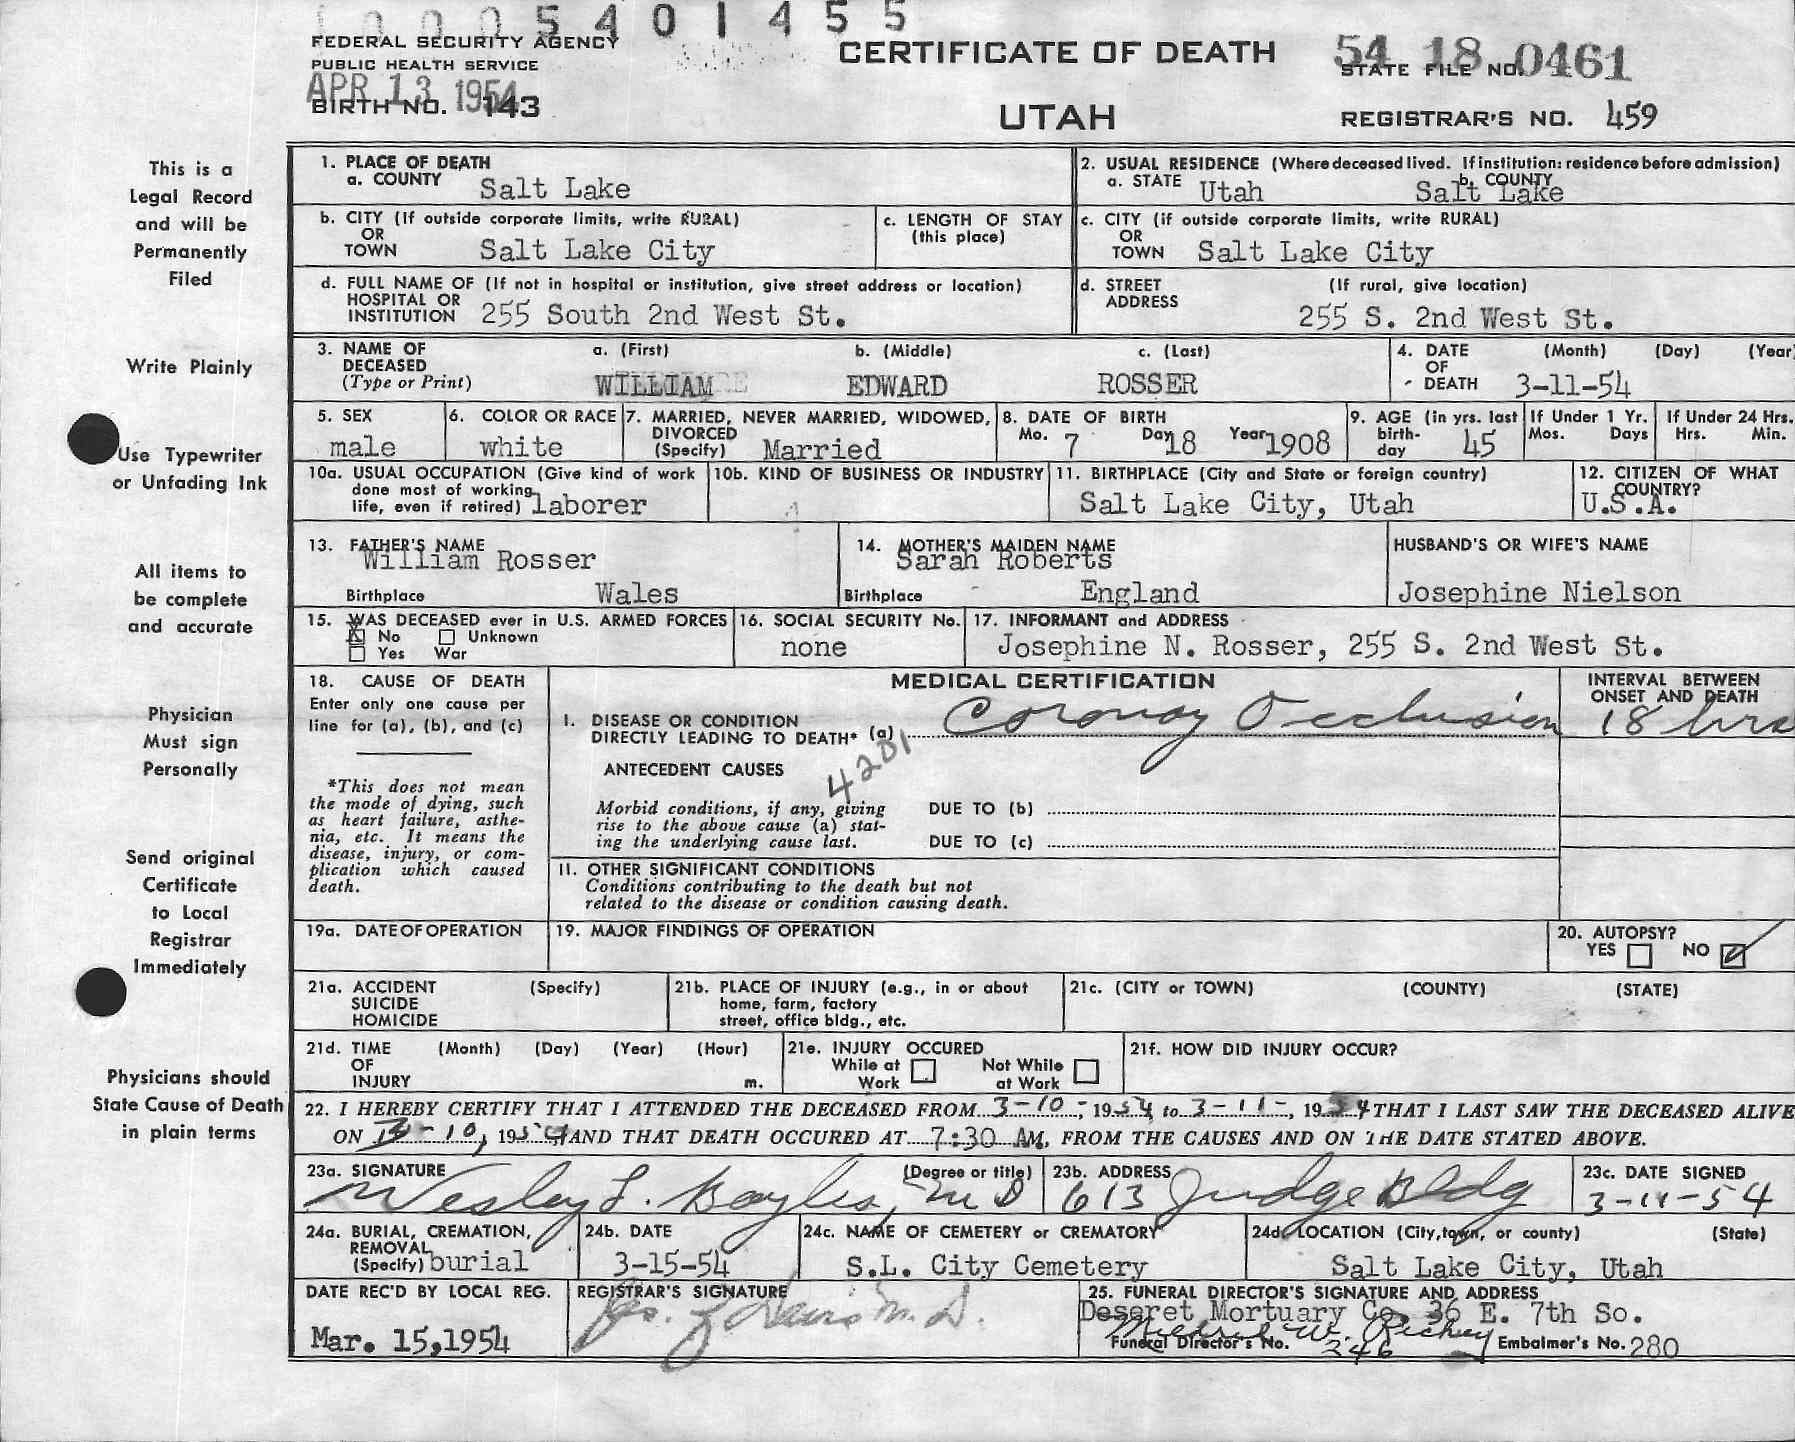 0005401455
FEDERAL SECURITY AGENCY
PUBLIC HEALTH SERVICE
APR 13 1954
BIRTH NO. 143
CERTIFICATE OF DEATH
UTAH
54 18 0461
STATE FILE NO.
REGISTRAR'S NO. 459
This is a
Legal Record
and will be
Permanently
Filed
Write Plainly
Use Typewriter
or Unfading Ink
All items to
be complete
and accurate
Physician
Must sign
Personally
Send original
Certificate
to Local
Registrar
Immediately
Physicians should
State Cause of Death
in plain terms
1. PLACE OF DEATH
a. COUNTY Salt Lake
2. USUAL RESIDENCE (Where deceased lived. If institution: residence before admission)
a. STATE Utah b. COUNTY Salt Lake
b. CITY (If outside corporate limits, write RURAL)
OR
TOWN Salt Lake City
c. LENGTH OF STAY
(this place)
c. CITY (if outside corporate limits, write RURAL)
OR
TOWN Salt Lake City
d. FULL NAME OF (If not in hospital or institution, give street address or location)
HOSPITAL OR
INSTITUTION 255 South 2nd West St.
d. STREET (If rural, give location)
ADDRESS
255 S. 2nd West St.
3. NAME OF a. (First) b. (Middle) c. (Last)
DECEASED
(Type or Print) WILLIAM EDWARD ROSSER
4. DATE (Month) (Day) (Year
OF
DEATH 3-11-54
5. SEX
male
6. COLOR OR RACE
white
7. MARRIED, NEVER MARRIED, WIDOWED,
DIVORCED
(Specify) Married
8. DATE OF BIRTH
Mo. 7 Day 18 Year 1908
9. AGE (in yrs. last
birth-
day 45
If Under 1 Yr.
Mos. Days
If Under 24 Hrs.
Hrs. Min.
10a. USUAL OCCUPATION (Give kind of work
done most of working
life, even if retired) laborer
10b. KIND OF BUSINESS OR INDUSTRY
11. BIRTHPLACE (City and State or foreign country)
Salt Lake City, Utah
12. CITIZEN OF WHAT
COUNTRY?
U.S.A.
13. FATHER'S NAME
William Rosser
Birthplace Wales
14. MOTHER'S MAIDEN NAME
Sarah Roberts
Birthplace England
HUSBAND'S OR WIFE'S NAME
Josephine Nielson
15. WAS DECEASED ever in U.S. ARMED FORCES
X No Unknown
Yes War
16. SOCIAL SECURITY No.
none
17. INFORMANT and ADDRESS
Josephine N. Rosser, 255 S. 2nd West St.
18. CAUSE OF DEATH
Enter only one cause per
line for (a), (b), and (c)
*This does not mean
the mode of dying, such
as heart failure, asthe-
nia, etc. It means the
disease, injury, or com-
plication which caused
death.
MEDICAL CERTIFICATION
I. DISEASE OR CONDITION
DIRECTLY LEADING TO DEATH* (a) Coronary Occlusion
INTERVAL BETWEEN
ONSET AND DEATH
18 hrs
4201
ANTECEDENT CAUSES
Morbid conditions, if any, giving
rise to the above cause (a) stat-
ing the underlying cause last.
DUE TO (b)
DUE TO (c)
II. OTHER SIGNIFICANT CONDITIONS
Conditions contributing to the death but not
related to the disease or condition causing death.
19a. DATE OF OPERATION
19. MAJOR FINDINGS OF OPERATION
20. AUTOPSY?
YES NO ✓
21a. ACCIDENT (Specify)
SUICIDE
HOMICIDE
21b. PLACE OF INJURY (e.g., in or about
home, farm, factory
street, office bldg., etc.
21c. (CITY or TOWN) (COUNTY) (STATE)
21d. TIME (Month) (Day) (Year) (Hour)
OF
INJURY m.
21e. INJURY OCCURED
While at Not While
Work at Work
21f. HOW DID INJURY OCCUR?
22. I HEREBY CERTIFY THAT I ATTENDED THE DECEASED FROM 3-10-, 1954, to 3-11-, 1954 THAT I LAST SAW THE DECEASED ALIVE
ON 3-10, 1954 AND THAT DEATH OCCURED AT 7:30 AM, FROM THE CAUSES AND ON THE DATE STATED ABOVE.
23a. SIGNATURE (Degree or title)
Wesley L. Bayles, MD
23b. ADDRESS
613 Judge Bldg
23c. DATE SIGNED
3-11-54
24a. BURIAL, CREMATION,
REMOVAL
(Specify) burial
24b. DATE
3-15-54
24c. NAME OF CEMETERY or CREMATORY
S.L. City Cemetery
24d. LOCATION (City, town, or county) (State)
Salt Lake City, Utah
DATE REC'D BY LOCAL REG.
Mar. 15,1954
REGISTRAR'S SIGNATURE
M.D.
25. FUNERAL DIRECTOR'S SIGNATURE AND ADDRESS
Deseret Mortuary Co. 36 E. 7th So.
W. Richey
Funeral Director's No. 246 Embalmer's No. 280